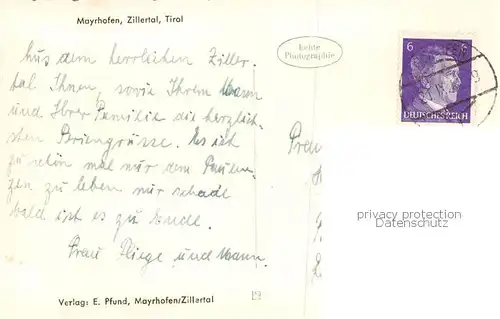 Mayrhofen, Zillertal, Tirol
Echte
Photographie
6 6
DEUTSCHES REICH
Aus dem herrlichen Ziller-
tal Ihnen, sowie Ihrem Mann
und Ihrer Familie die herzlich-
sten Feriengrüsse. Es ist
zu schön mal nur dem Faulen-
zen zu leben nur schade
bald ist es zu Ende.
Frau Kliege und Mann.
privacy protection
Datenschutz
Verlag: E. Pfund, Mayrhofen/Zillertal